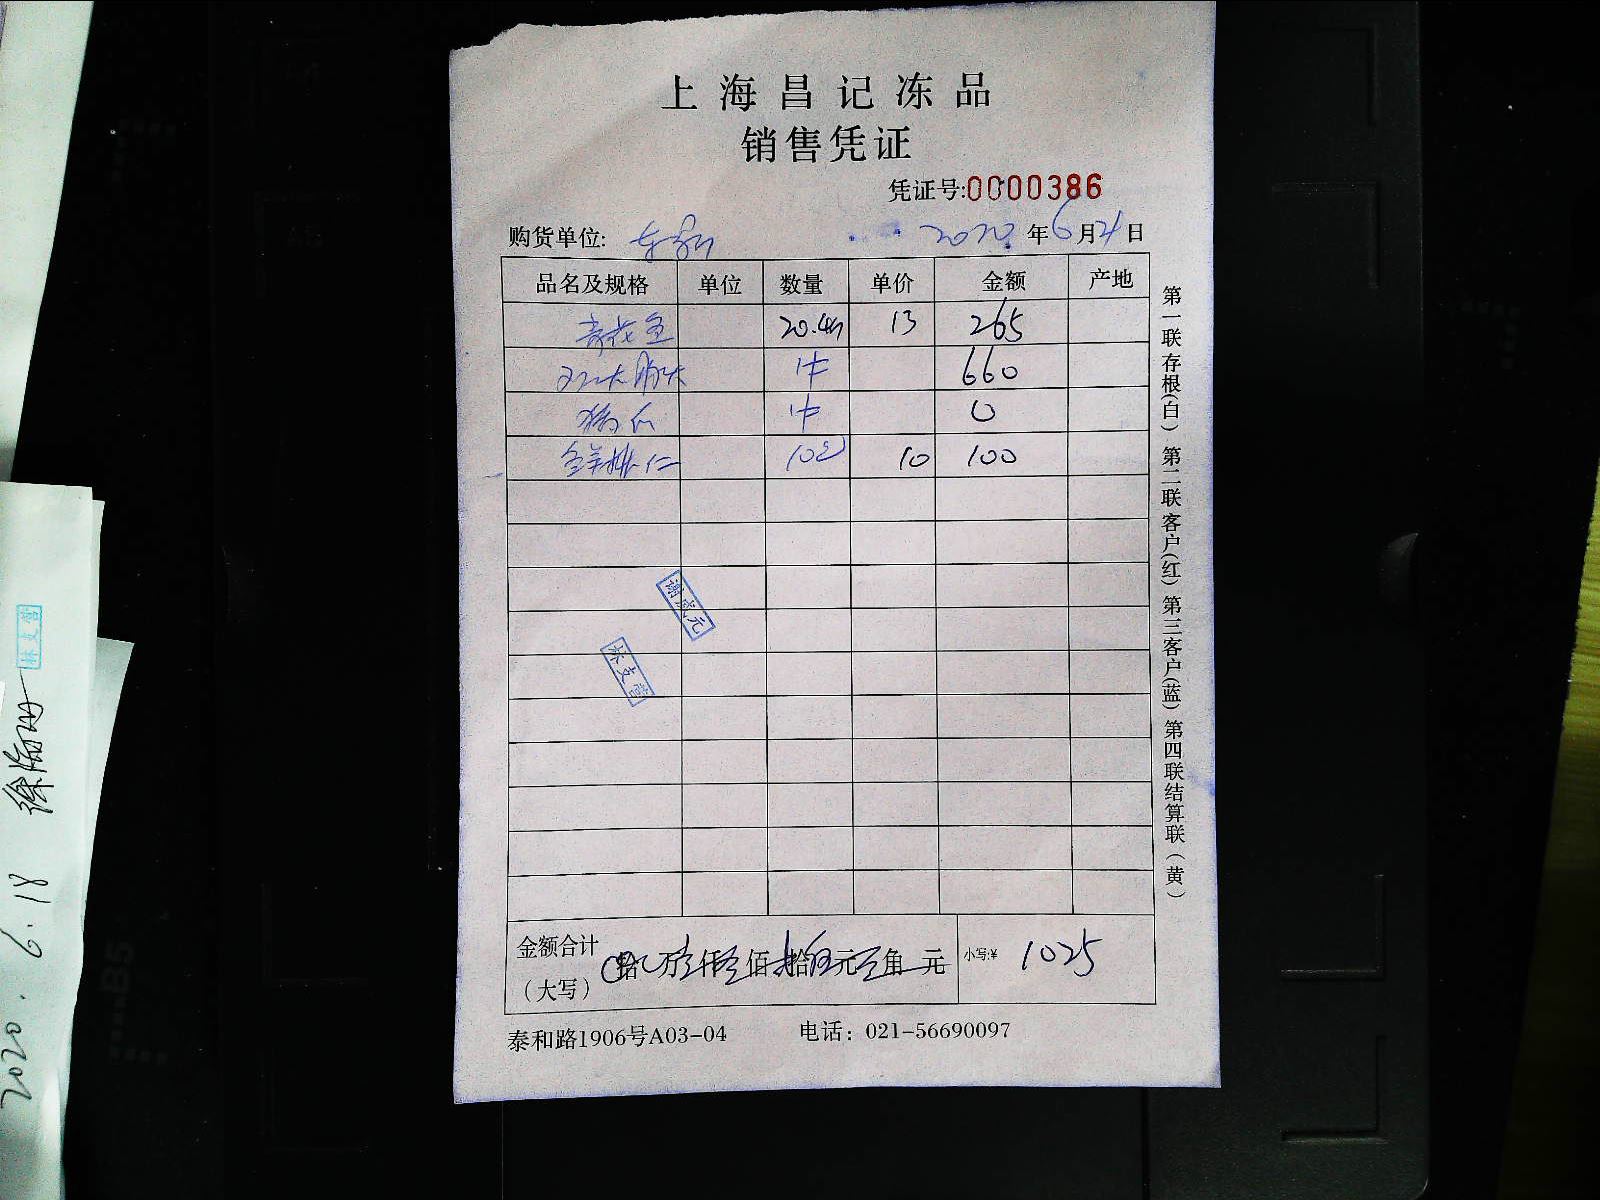 上海昌记冻品
销售凭证
凭证号:0000386
购货单位: 2020年6月21日
品名及规格 单位 数量 单价 金额 产地
20.4 13 265
1件 660
1件 0
10包 10 100
谢成元
林支营
金额合计
（大写） 万 仟 佰 拾 元 角 元 小写:¥ 1025
泰和路1906号A03-04 电话：021-56690097
第一联存根(白) 第二联客户(红) 第三客户(蓝) 第四联结算联(黄)
林支营
2020.6.18
B5